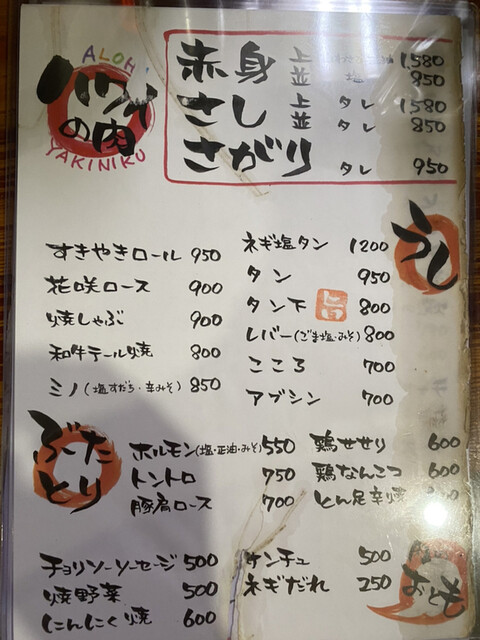 ALOH
ハワイ
の肉
YAKINIKU
赤身 上 1,580
並 塩 850
さし 上 タレ 1580
並 タレ 850
さがり タレ 950
うし
すきやきロール 950
花咲ロース 900
焼しゃぶ 900
和牛テール焼 800
ミノ(塩すだち・辛みそ) 850
ネギ塩タン 1200
タン 950
タン下 旨 800
レバー(ごま塩・みそ) 800
こころ 700
アブシン 700
ぶた
とり
ホルモン(塩・正油・みそ) 550
トントロ 750
豚肩ロース 700
鶏せせり 600
鶏なんこつ 600
とん足辛焼
チョリソーソーセージ 500
焼野菜 500
にんにく焼 600
ケンチュ 500
ネギだれ 250
おとも